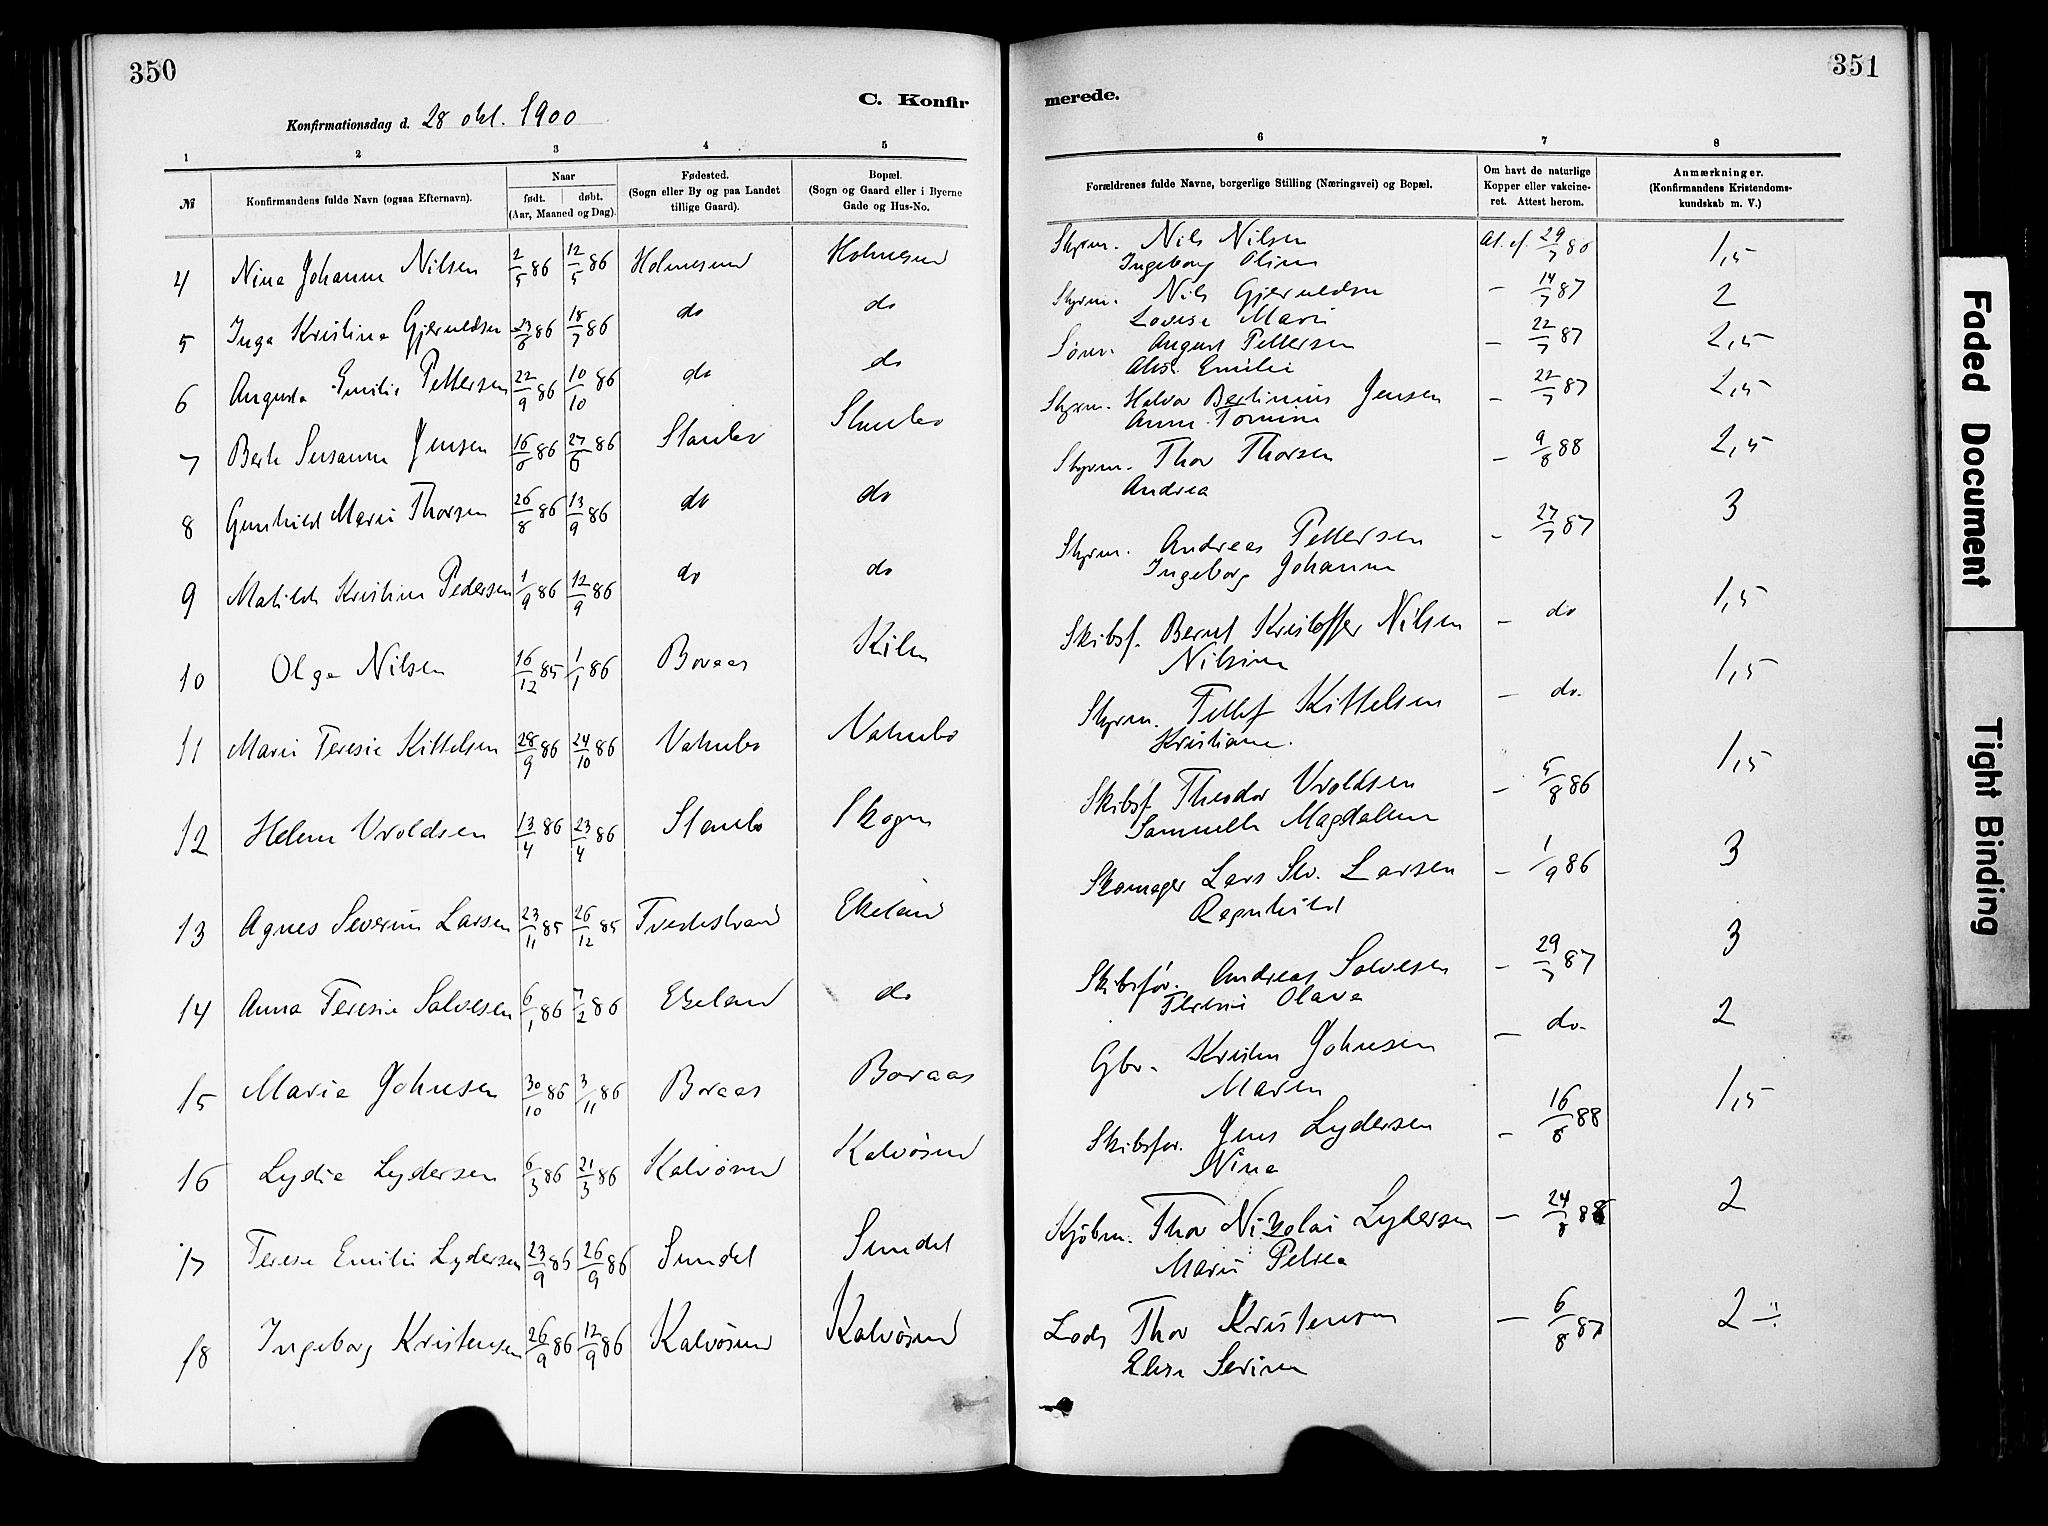 350
C. Konfir
Konfirmationsdag d. 28 okt. 1900
1 2 3 4 5
№ Konfirmandens fulde Navn (ogsaa Efternavn). Naar født. døbt. (Aar, Maaned og Dag). Fødested. (Sogn eller By og paa Landet tillige Gaard). Bopæl. (Sogn og Gaard eller i Byerne Gade og Hus-No.
4 Nina Johanne Nilsen 2/5 86 12/5 86 Holmesund Holmesund
5 Inga Kristine Gjeruldsen 23/6 86 18/7 86 do do
6 Augusta Emilie Pettersen 22/9 86 10/10 86 do do
7 Berte Susanne Jensen 16/6 86 27/6 86 Staubo Staubo
8 Gunhild Marie Thorsen 26/8 86 13/9 86 do do
9 Matilde Kristine Pedersen 1/9 86 12/9 86 do do
10 Olga Nilsen 16/12 85 1/1 86 Boraas Kilen
11 Marie Teresie Kittelsen 28/9 86 24/10 86 Vatnebo Vatnebo
12 Helene Uroldsen 13/4 86 23/4 86 Staubo Skogen
13 Agnes Severine Larsen 23/11 85 26/12 85 Tvedestrand Ekeland
14 Anna Teresie Salvesen 6/1 86 7/2 86 Ekeland do
15 Marie Johnsen 30/10 86 3/11 86 Boraas Boraas
16 Lydia Lydersen 6/3 86 21/3 86 Kalvøsund Kalvøsund
17 Terese Emilie Lydersen 23/9 86 26/9 86 Sundet Sundet
18 Ingeborg Kristensen 26/9 86 12/9 86 Kalvøsund Kalvøsund
351
merede.
6 7 8
Forældrenes fulde Navne, borgerlige Stilling (Næringsvei) og Bopæl. Om havt de naturlige Kopper eller vakcineret. Attest herom. Anmærkninger. (Konfirmandens Kristendomskundskab m. V.)
Styrm. Nils Nilsen At. af 29/7 86 1,5
Ingeborg Oline
Styrm. Nils Gjeruldsen – 14/7 87 2
Lovise Marie
Søm. August Pettersen – 22/7 87 2,5
Alise Emilie
Styrm. Halvor Bertinius Jensen – 22/7 87 2,5
Anne Tomine
Styrm. Thor Thorsen – 9/8 88 2,5
Andrea
Styrm. Andreas Pettersen – 27/7 87 3
Ingeborg Johanne
Skibsf. Bernt Kristoffer Nilsen – do 1,5
Nilsine
Styrm. Tellef Kittelsen – do. 1,5
Kristiane.
Skibsf. Theodor Uroldsen – 5/8 86 1,5
Samuelle Magdalene
Skomager Lars Sev. Larsen – 1/9 86 3
Ragnhild
Skibsfør. Andreas Salvesen – 29/7 87 3
Teresie Olava
Gbr. Kristen Johnsen – do. 2
Maren
Skibsfør. Jens Lydersen – 16/8 88 1,5
Nina
Kjøbm. Thor Nikolai Lydersen – 24/8 88 2
Marie Petrea
Lods Thor Kristensen – 6/8 87 2 ÷
Elise Serine
Faded Document
Tight Binding